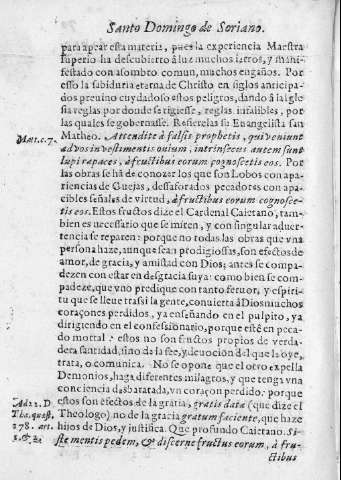 Santo Domingo de Soriano.
para apear esta materia, pues la experiencia Maestra
superio ha descubierto à luz muchos
festado con asombro comun, muchos engaños. Por
esso la sabiduria eterna de Christo en siglos anticipa-
dos preuino cuydadoso estos peligros, dando à la Igle
sia reglas por donde se rigiesse, reglas infalibles, por
las quales se gobernasse. Refierelas su Euangelista san
Matheo. Attendite à falsis prophetis, qui veniunt
Mat. c. 7.
ad vos in vestimentis ouium, intrinsecus autem sunt
lupi rapaces, à fructibus eorum cognoscetis eos. Por
las obras se hã de conozer los que son Lobos con apa-
riencias de Ouejas, dessaforados pecadores con apa-
cibles señales de virtud, à fructibus eorum cognosce-
tis eos. Estos fructos dize el Cardenal Caietano, tam-
bien es necessario que se miren, y con singular aduer-
tencia se reparen: porque no todas las obras que vna
persona haze, aunque sean prodigiosas, son efectos de
amor, de gracia, y amistad con Dios; antes se compa-
dezen con estar en desgracia suya: como bien se com-
padeze, que vno predique con tanto feruor, y espiri-
tu que se lleue tras si la gente, conuierta à Dios muchos
coraçones perdidos, ya enseñando en el pulpito, ya
dirigiendo en el confessionario, porque estè en peca-
do mortal: estos no son fructos propios de verda-
dera santidad, sino de la fee, y deuocion del que la oye,
trata, o comunica. No se opone que el otro expella
Demonios, haga diferentes milagros, y que tenga vna
conciencia desbaratada, vn coraçon perdido: porque
estos son efectos de la gracia, gratis data (que dize el
Ad 22. D.
Theologo) no de la gracia gratum faciente, que haze
Tho. quest.
hijos de Dios, y justifica. Que profundo Caietano. Si-
178. art.
ste mentis pedem, & discerne fructus eorum, à fru-
1. & 2.
ctibus